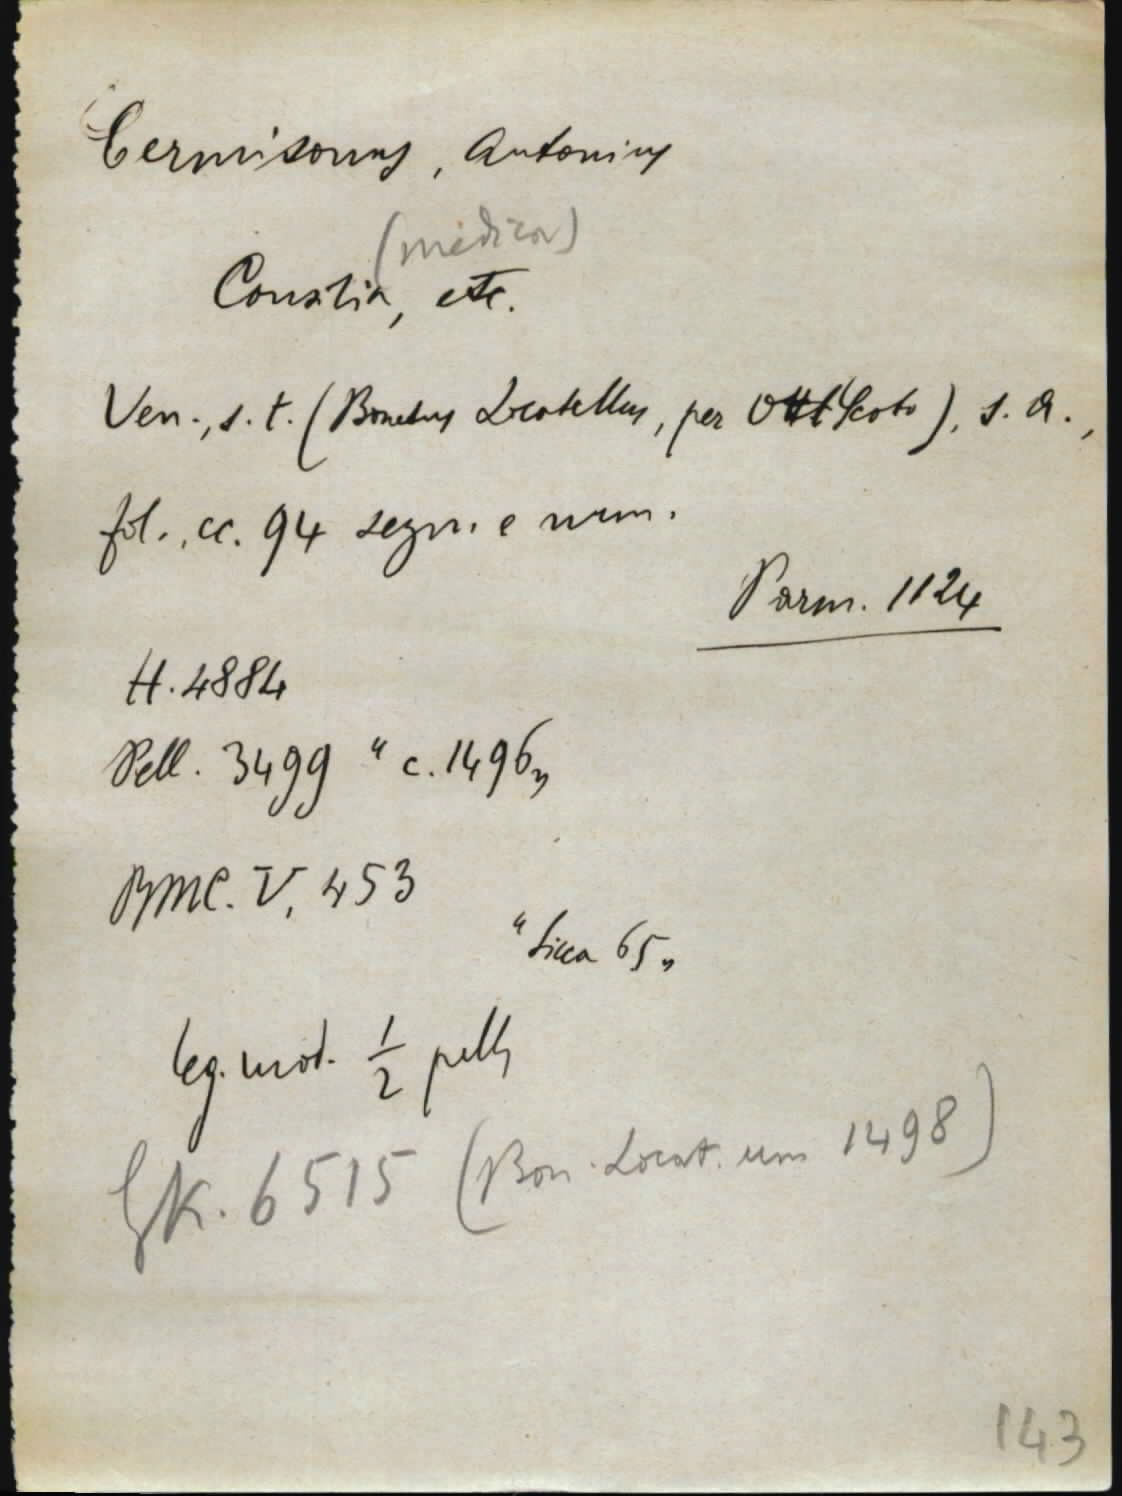 Cermisonus, Antonius
(medica)
Consilia, etc.
Ven., s. t. (Bonetus Locatellus, per Ott. Scoto), s. a.,
fol., cc. 94 segn. e num.
Parm. 1124
H. 4884
Pell. 3499 "c. 1496„
BMC. V, 453
"Sicca 65„
leg. mod. 1/2 pelle
GK. 6515 (Bon. Locat. um 1498)
143